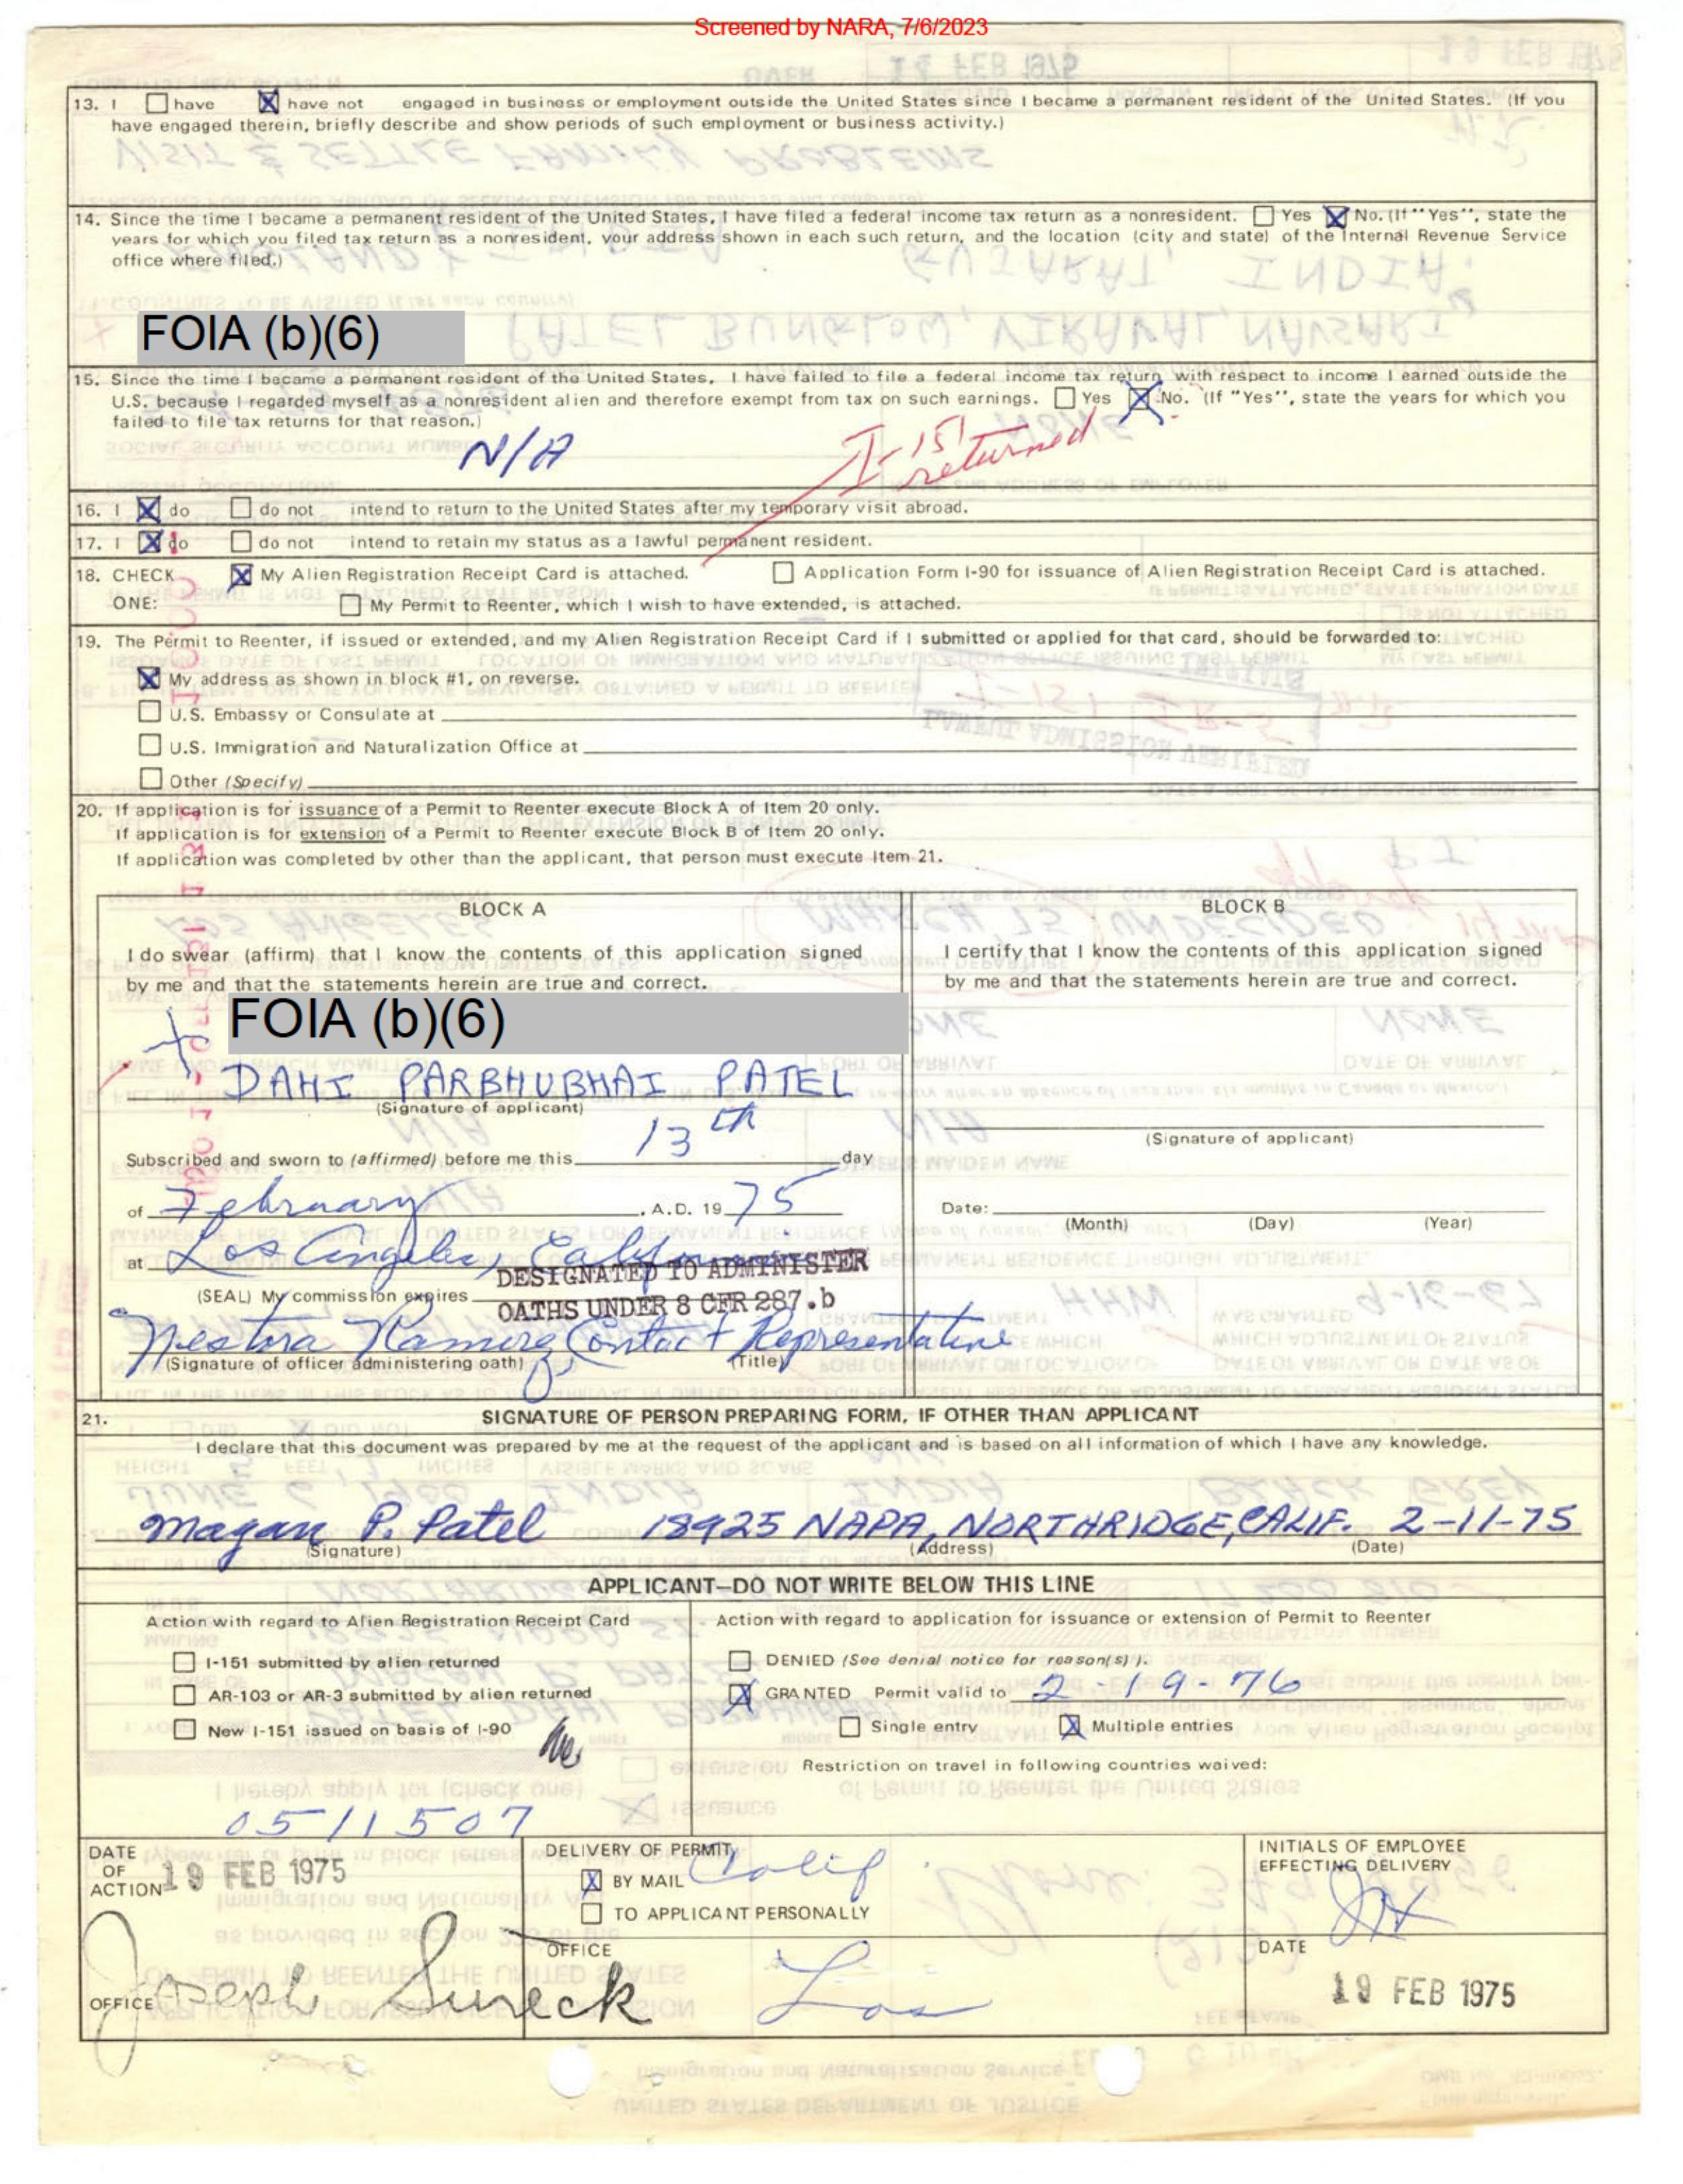 Screened by NARA, 7/6/2023
13. I ☐ have ☒ have not engaged in business or employment outside the United States since I became a permanent resident of the United States. (If you
have engaged therein, briefly describe and show periods of such employment or business activity.)
14. Since the time I became a permanent resident of the United States, I have filed a federal income tax return as a nonresident. ☐ Yes ☒ No. (If "Yes", state the
years for which you filed tax return as a nonresident, your address shown in each such return, and the location (city and state) of the Internal Revenue Service
office where filed.)
FOIA (b)(6)
15. Since the time I became a permanent resident of the United States, I have failed to file a federal income tax return with respect to income I earned outside the
U.S. because I regarded myself as a nonresident alien and therefore exempt from tax on such earnings. ☐ Yes ☒ No. (If "Yes", state the years for which you
failed to file tax returns for that reason.)
N/A
I-151
returned
16. I ☒ do ☐ do not intend to return to the United States after my temporary visit abroad.
17. I ☒ do ☐ do not intend to retain my status as a lawful permanent resident.
18. CHECK ☒ My Alien Registration Receipt Card is attached. ☐ Application Form I-90 for issuance of Alien Registration Receipt Card is attached.
ONE: ☐ My Permit to Reenter, which I wish to have extended, is attached.
19. The Permit to Reenter, if issued or extended, and my Alien Registration Receipt Card if I submitted or applied for that card, should be forwarded to:
☒ My address as shown in block #1, on reverse.
☐ U.S. Embassy or Consulate at
☐ U.S. Immigration and Naturalization Office at
☐ Other (Specify)
20. If application is for issuance of a Permit to Reenter execute Block A of Item 20 only.
If application is for extension of a Permit to Reenter execute Block B of Item 20 only.
If application was completed by other than the applicant, that person must execute Item 21.
BLOCK A
I do swear (affirm) that I know the contents of this application signed
by me and that the statements herein are true and correct.
FOIA (b)(6)
DAHI PARBHUBHAI PATEL
(Signature of applicant)
Subscribed and sworn to (affirmed) before me this 13th day
of February, A.D. 1975
at Los Angeles, California
DESIGNATED TO ADMINISTER
(SEAL) My commission expires
OATHS UNDER 8 CFR 287.b
Nestora Ramirez Contact Representative
(Signature of officer administering oath) (Title)
BLOCK B
I certify that I know the contents of this application signed
by me and that the statements herein are true and correct.
(Signature of applicant)
Date:
(Month) (Day) (Year)
21. SIGNATURE OF PERSON PREPARING FORM, IF OTHER THAN APPLICANT
I declare that this document was prepared by me at the request of the applicant and is based on all information of which I have any knowledge.
Magan P. Patel 18925 NAPA, NORTHRIDGE, CALIF. 2-11-75
(Signature) (Address) (Date)
APPLICANT—DO NOT WRITE BELOW THIS LINE
Action with regard to Alien Registration Receipt Card
☐ I-151 submitted by alien returned
☐ AR-103 or AR-3 submitted by alien returned
☐ New I-151 issued on basis of I-90
0511507
Action with regard to application for issuance or extension of Permit to Reenter
☐ DENIED (See denial notice for reason(s) ).
☒ GRANTED Permit valid to 2-19-76
☐ Single entry ☒ Multiple entries
Restriction on travel in following countries waived:
DATE
OF
ACTION 19 FEB 1975
OFFICE Joseph Sureck
DELIVERY OF PERMIT
☒ BY MAIL Calif
☐ TO APPLICANT PERSONALLY
OFFICE
Los
INITIALS OF EMPLOYEE
EFFECTING DELIVERY
DATE
19 FEB 1975